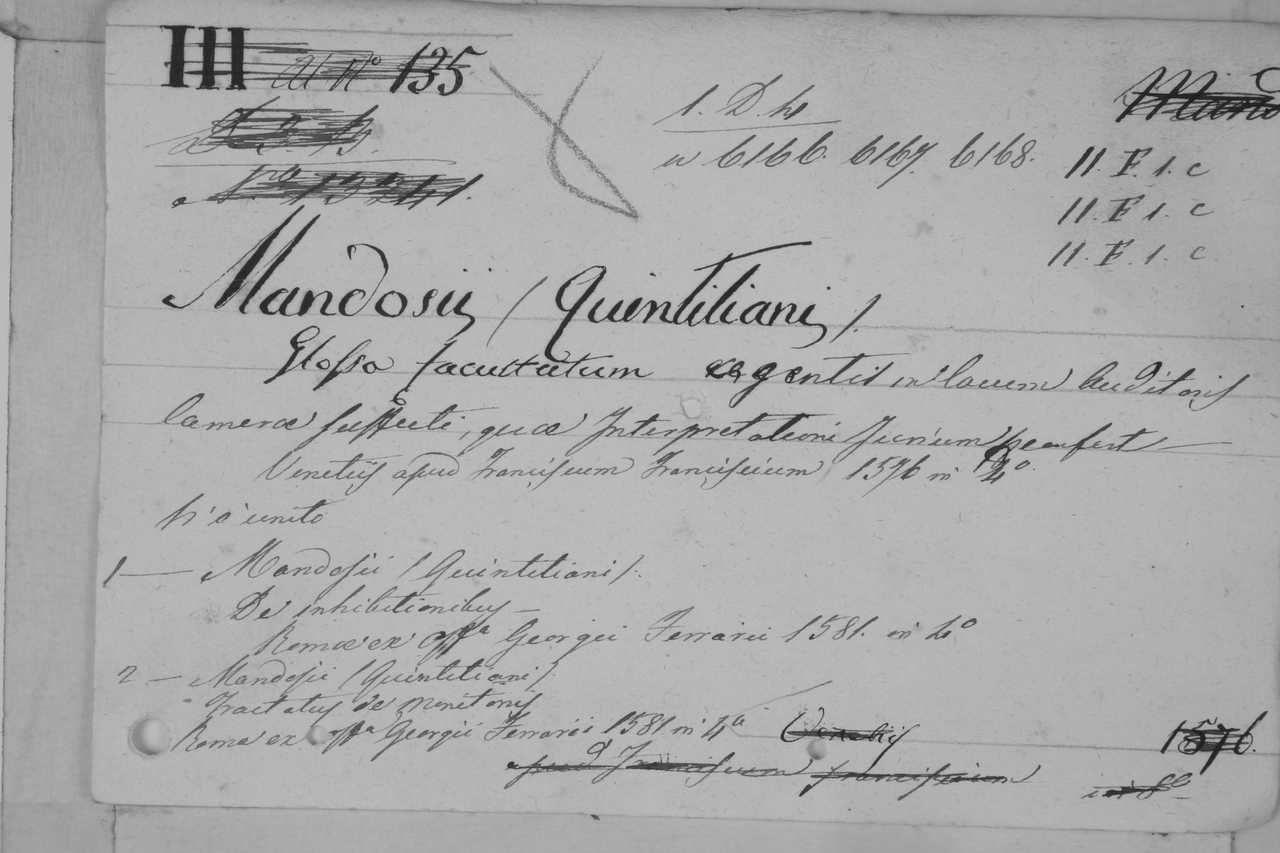 III al N.º 135
1. D. h
a 6166. 6167. 6168.
11. F. 1. c
11. F. 1. c
11. F. 1. c
Mandosii (Quintiliani).
Glossa facultatum agentis in locum Auditoris
Cameræ suffecti, quæ Interpretationi Jurium
Venetiis apud Franciscum Franciscium 1576 in 4.º
h'è unito
1 — Mandosii (Quintiliani).
De inhibitionibus —
Romæ ex offª Georgii Ferrarii 1581. in 4.º
2 — Mandosii (Quintiliani).
Tractatus de monitoriis
Romæ ex offª Georgii Ferrarii 1581 in 4.º
Venetiis 1576.
apud Franciscum Franciscium in 8.º